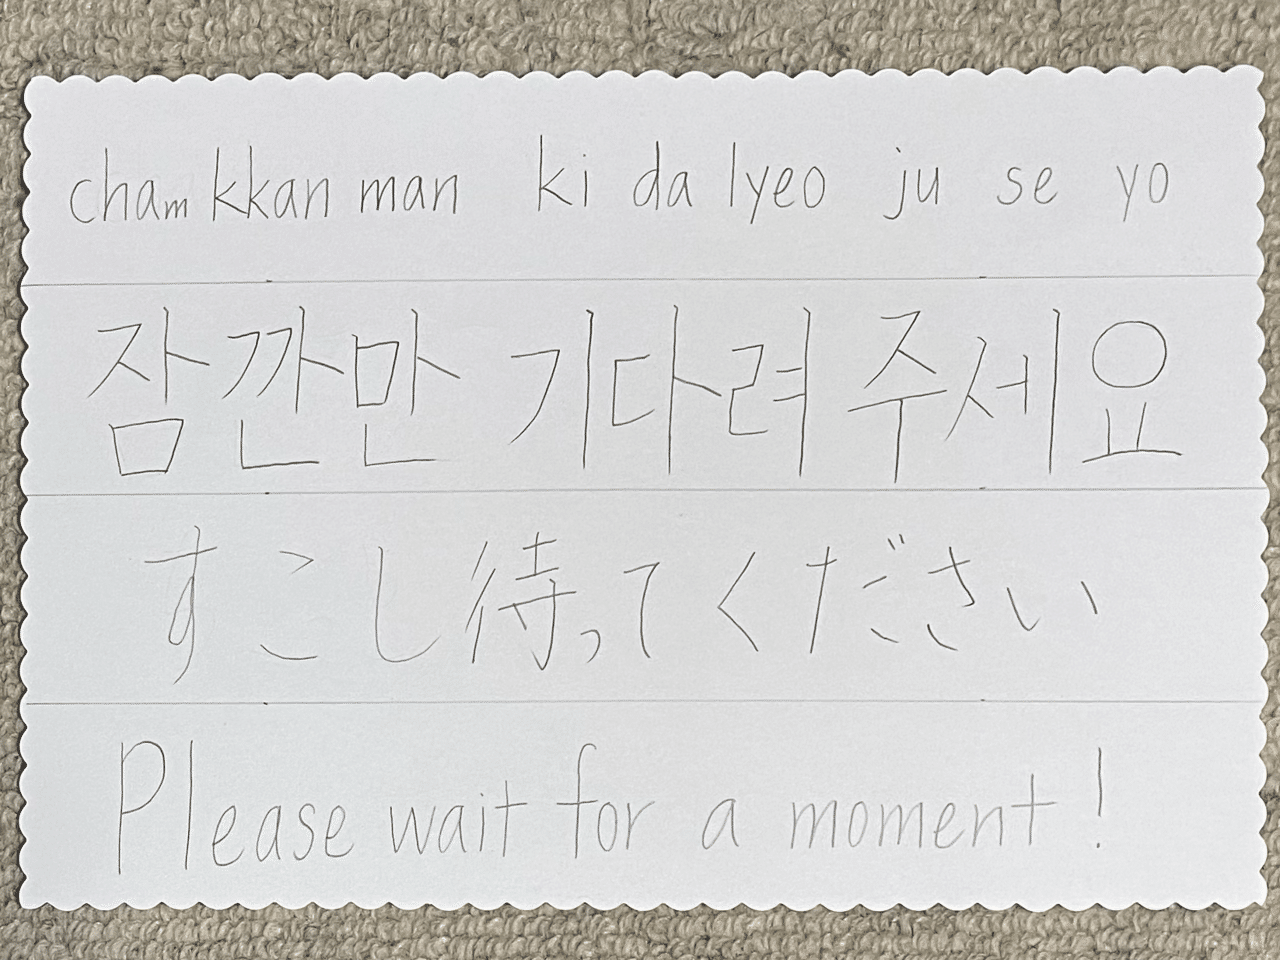 cham kkan man ki da lyeo ju se yo
잠깐만 기다려 주세요
すこし待ってください
Please wait for a moment!